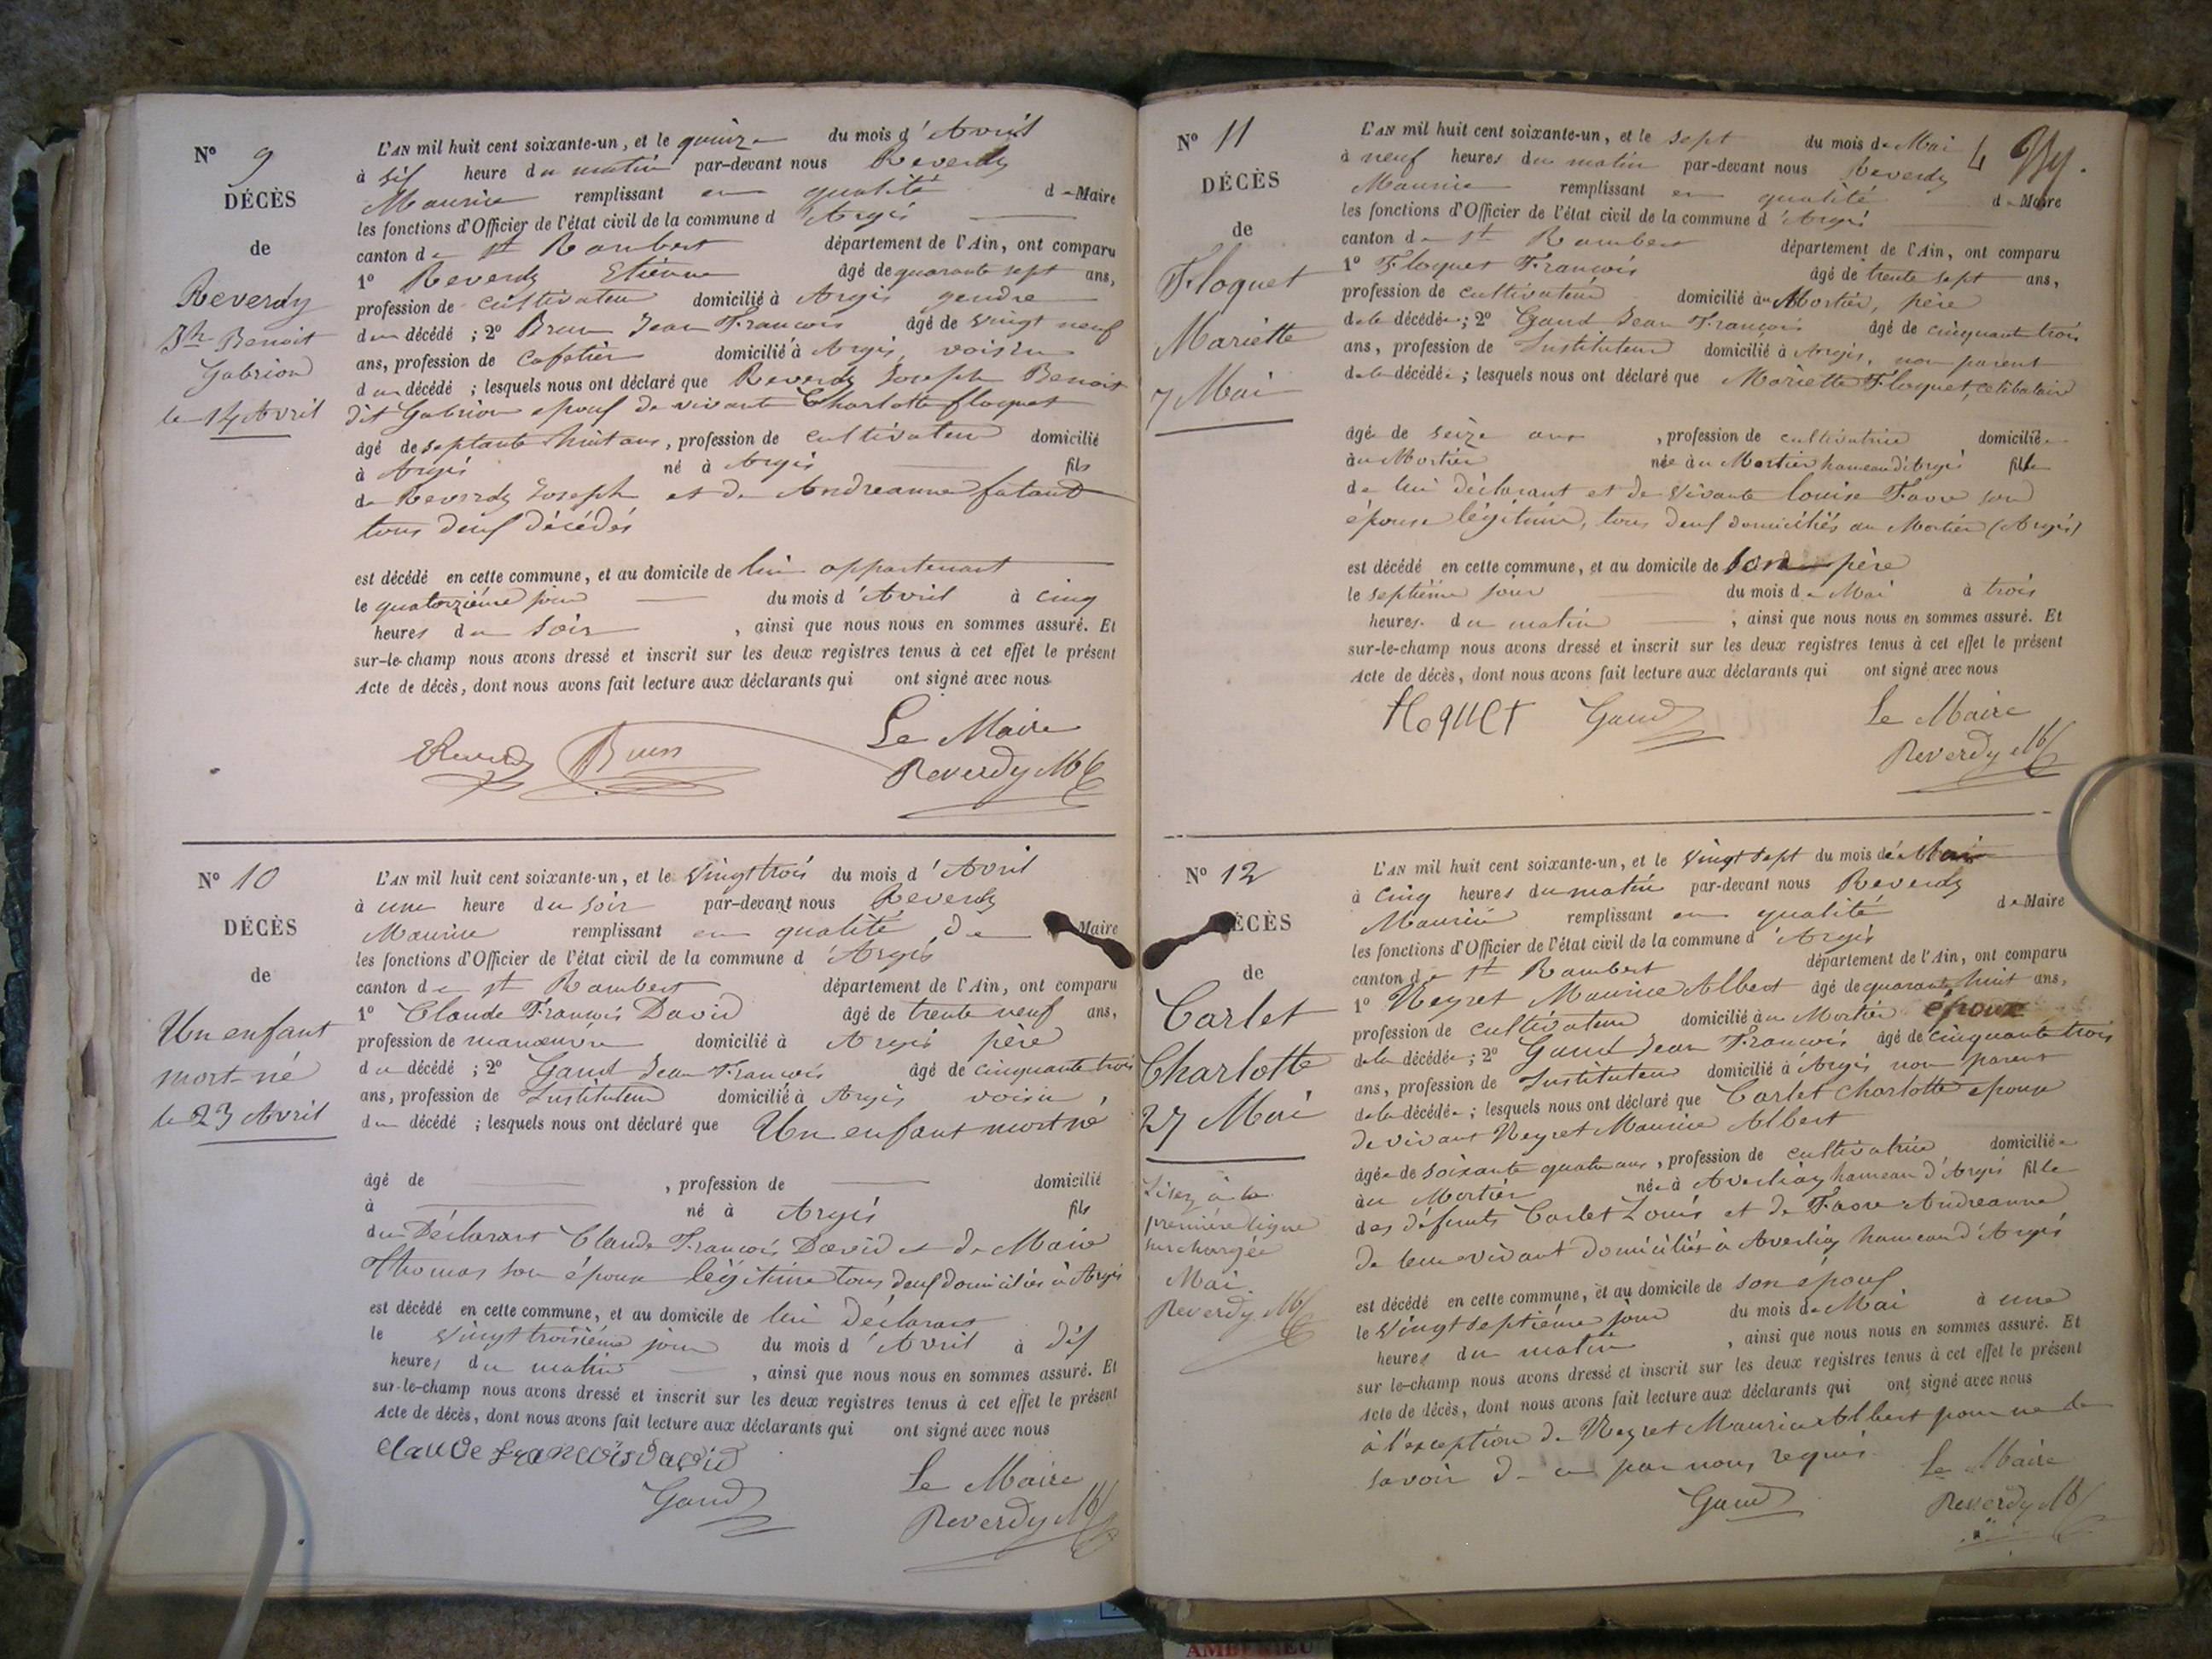 Nº 9
DÉCÈS
de
Reverdy
Jh Benoit
Gabrion
le 14 Avril
L'AN mil huit cent soixante-un, et le quinze du mois d'Avril
à six heure du matin par-devant nous Reverdy
Maurice remplissant en qualité de Maire
les fonctions d'Officier de l'état civil de la commune d'Argis
canton de St Rambert département de l'Ain, ont comparu
1º Reverdy Etienne âgé de quarante sept ans,
profession de cultivateur domicilié à Argis gendre
du décédé ; 2º Brun Jean François âgé de vingt neuf
ans, profession de cafetier domicilié à Argis, voisin
du décédé ; lesquels nous ont déclaré que Reverdy Joseph Benoit
dit Gabrion epoux de vivante Charlotte floquet
âgé de septante huit ans, profession de cultivateur domicilié
à Argis né à Argis fils
de Reverdy Joseph et de Andreanne
tous deux décédés
est décédé en cette commune, et au domicile de lui appartenant
le quatorzième jour du mois d'Avril à cinq
heures du soir, ainsi que nous nous en sommes assuré. Et
sur-le-champ nous avons dressé et inscrit sur les deux registres tenus à cet effet le présent
Acte de décès, dont nous avons fait lecture aux déclarants qui ont signé avec nous
Le Maire
Reverdy Brun Reverdy M
Nº 10
DÉCÈS
de
Un enfant
mort-né
le 23 Avril
L'AN mil huit cent soixante-un, et le vingt trois du mois d'Avril
à une heure du soir par-devant nous Reverdy
Maurice remplissant en qualité de Maire
les fonctions d'Officier de l'état civil de la commune d'Argis
canton de St Rambert département de l'Ain, ont comparu
1º Claude François David âgé de trente neuf ans,
profession de manœuvre domicilié à Argis père
du décédé ; 2º Gaud Jean François âgé de cinquante trois
ans, profession de Instituteur domicilié à Argis voisin
du décédé ; lesquels nous ont déclaré que Un enfant mort né
âgé de , profession de domicilié
à né à Argis fils
du Déclarant Claude François David et de Marie
Thomas son épouse légitime tous deux domiciliés à Argis
est décédé en cette commune, et au domicile de lui déclarant
le vingt troisième jour du mois d'Avril à dix
heures du matin, ainsi que nous nous en sommes assuré. Et
sur-le-champ nous avons dressé et inscrit sur les deux registres tenus à cet effet le présent
Acte de décès, dont nous avons fait lecture aux déclarants qui ont signé avec nous
Claude françois david
Gaud Le Maire
Reverdy M
Nº 11
DÉCÈS
de
Floquet
Mariette
7 Mai
4
L'AN mil huit cent soixante-un, et le sept du mois de Mai
à neuf heures du matin par-devant nous Reverdy
Maurice remplissant en qualité de Maire
les fonctions d'Officier de l'état civil de la commune d'Argis
canton de St Rambert département de l'Ain, ont comparu
1º Floquet François âgé de trente sept ans,
profession de cultivateur domicilié au Mortier, père
de la décédée ; 2º Gaud Jean François âgé de cinquante trois
ans, profession de Instituteur domicilié à Argis, non parent
de la décédée ; lesquels nous ont déclaré que Mariette Floquet, célibataire
âgée de seize ans, profession de cultivatrice domiciliée
au Mortier née au Mortier hameau d'Argis fille
de lui déclarant et de vivante louise Favre son
épouse légitime, tous deux domiciliés au Mortier (Argis)
est décédé en cette commune, et au domicile de son père
le septième jour du mois de Mai à trois
heures du matin ; ainsi que nous nous en sommes assuré. Et
sur-le-champ nous avons dressé et inscrit sur les deux registres tenus à cet effet le présent
Acte de décès, dont nous avons fait lecture aux déclarants qui ont signé avec nous
floquet Gaud Le Maire
Reverdy M
Nº 12
DÉCÈS
de
Carlet
Charlotte
27 Mai
Lisez à la
première ligne
surchargée
Mai.
Reverdy M
L'AN mil huit cent soixante-un, et le vingt sept du mois de Mai
à cinq heures du matin par-devant nous Reverdy
Maurice remplissant en qualité de Maire
les fonctions d'Officier de l'état civil de la commune d'Argis
canton de St Rambert département de l'Ain, ont comparu
1º Neyret Maurice Albert âgé de quarante huit ans,
profession de cultivateur domicilié au Mortier époux
de la décédée ; 2º Gaud Jean François âgé de cinquante trois
ans, profession de Instituteur domicilié à Argis non parent
de la décédée ; lesquels nous ont déclaré que Carlet Charlotte epouse
de vivant Neyret Maurice Albert
âgée de soixante quatre ans, profession de cultivatrice domiciliée
au Mortier née à Averliaz hameau d'Argis fille
des défunts Carlet Louis et de Favre Andreanne
de leur vivant domiciliés à Averliaz hameau d'Argis
est décédé en cette commune, et au domicile de son époux
le vingt septième jour du mois de Mai à une
heures du matin, ainsi que nous nous en sommes assuré. Et
sur le-champ nous avons dressé et inscrit sur les deux registres tenus à cet effet le présent
Acte de décès, dont nous avons fait lecture aux déclarants qui ont signé avec nous
à l'exception de Neyret Maurice Albert pour ne le
savoir de ce par nous requis. Le Maire
Gaud Reverdy M
AMBERIEU